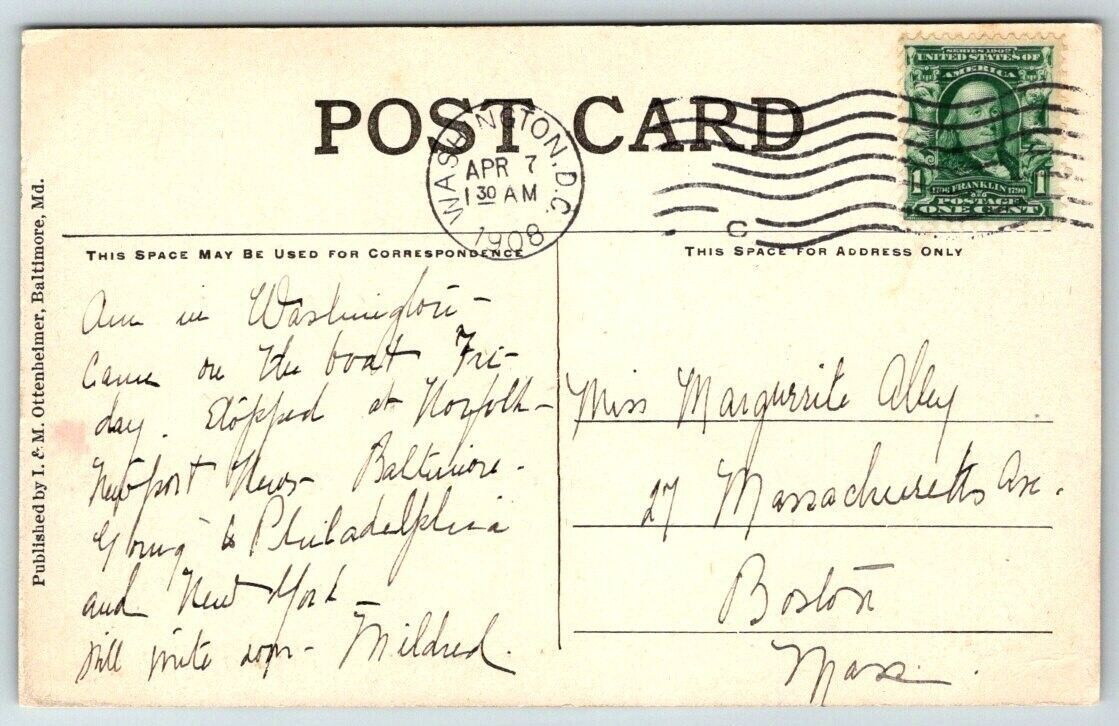 POST CARD
WASHINGTON, D.C.
APR 7
1 30 AM
1908
C
SERIES 1902
UNITED STATES OF
AMERICA
1 1706 FRANKLIN 1790 1
POSTAGE
ONE CENT
Published by I. & M. Ottenheimer, Baltimore, Md.
THIS SPACE MAY BE USED FOR CORRESPONDENCE
Am in Washington –
Came on the boat Fri-
day. Stopped at Norfolk –
Newport News – Baltimore.
Going to Philadelphia
and New York –
Will write soon – Mildred.
THIS SPACE FOR ADDRESS ONLY
Miss Margurrite Alley
27 Massachusetts Ave.
Boston
Mass.